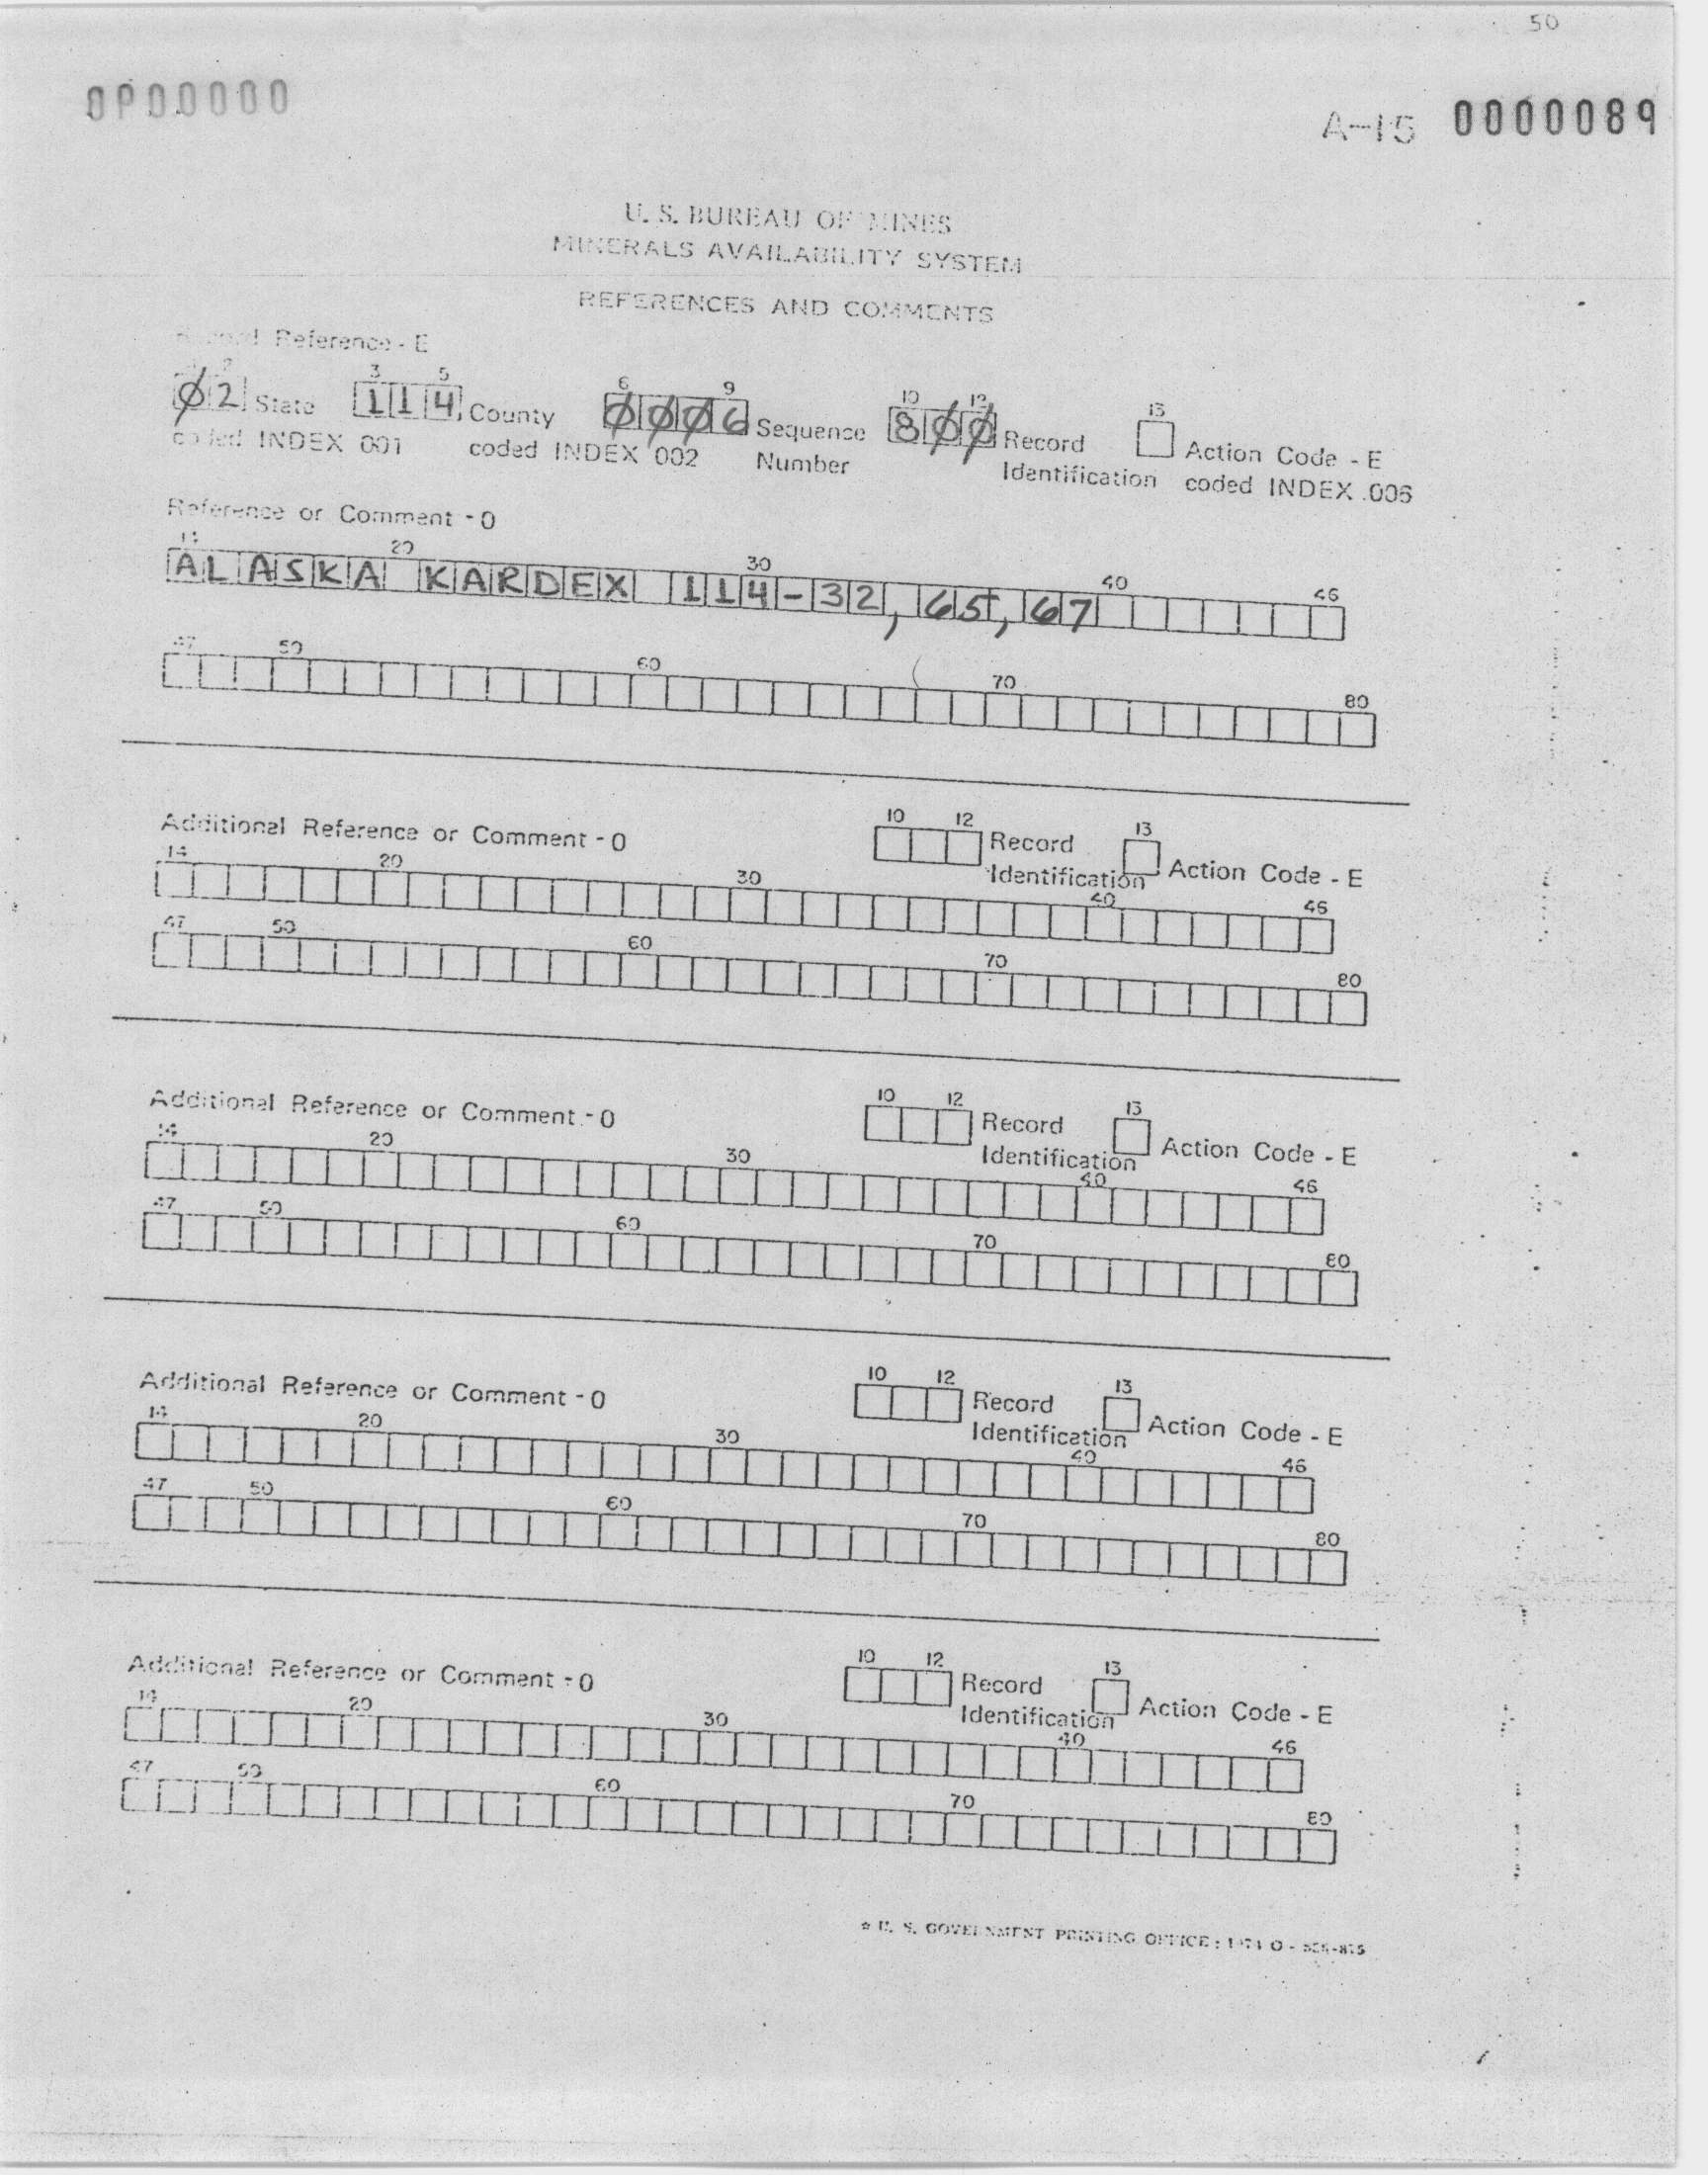 50
0P00000
A-15 0000089
U. S. BUREAU OF MINES
MINERALS AVAILABILITY SYSTEM
REFERENCES AND COMMENTS
Reference - E
2 3 5 6 9 10 12 13
Ø2 State 114 County ØØØ6 Sequence 8ØØ Record Action Code - E
coded INDEX 001 coded INDEX 002 Number Identification coded INDEX 006
Reference or Comment - O
14 20 30 40 46
ALASKA KARDEX 114-32, 65, 67
47 50 60 70 80
Additional Reference or Comment - O 10 12 Record 13
Identification Action Code - E
14 20 30 40 46
47 50 60 70 80
Additional Reference or Comment - O 10 12 Record 13
Identification Action Code - E
14 20 30 40 46
47 50 60 70 80
Additional Reference or Comment - O 10 12 Record 13
Identification Action Code - E
14 20 30 40 46
47 50 60 70 80
Additional Reference or Comment - O 10 12 Record 13
Identification Action Code - E
14 20 30 40 46
47 50 60 70 80
☆ U. S. GOVERNMENT PRINTING OFFICE :